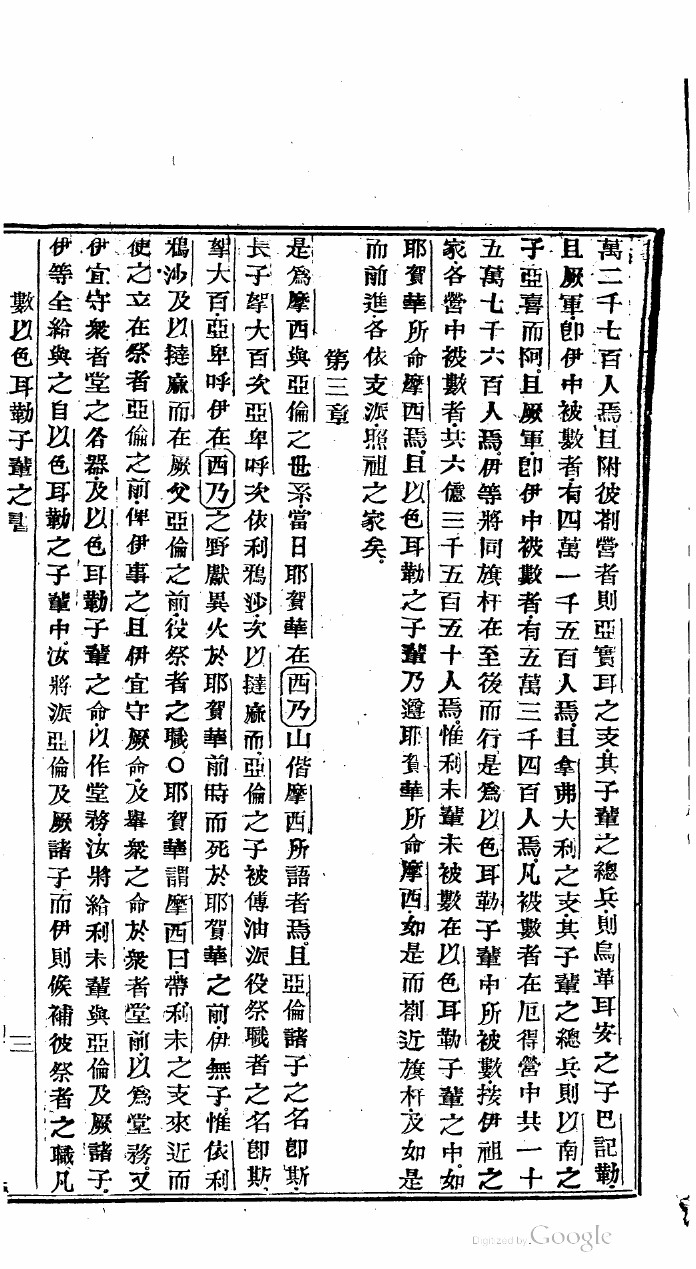 萬二千七百人焉且附彼剳營者則亞實耳之支其子輩之總兵則烏革耳安之子巴記勒
且厥軍卽伊中被數者有四萬一千五百人焉且拿弗大利之支其子輩之總兵則以南之
子亞喜而阿且厥軍卽伊中被數者有五萬三千四百人焉凡被數者在厄得營中共一十
五萬七千六百人焉伊等將同旗杆在至後而行是爲以色耳勒子輩中所被數按伊祖之
家各營中被數者共六億三千五百五十人焉惟利未輩未被數在以色耳勒子輩之中如
耶賀華所命摩西焉且以色耳勒之子輩乃遵耶賀華所命摩西如是而剳近旗杆及如是
而前進各依支派照祖之家矣
第三章
是爲摩西與亞倫之世系當日耶賀華在西乃山偕摩西所語者焉且亞倫諸子之名卽斯
長子拏大百次亞卑呼次依利鴉沙次以撻麻而亞倫之子被傅油派役祭職者之名卽斯
拏大百亞卑呼伊在西乃之野獻異火於耶賀華前時而死於耶賀華之前伊無子惟依利
鴉沙及以撻麻而在厥父亞倫之前役祭者之職○耶賀華謂摩西曰帶利未之支來近而
使之立在祭者亞倫之前俾伊事之且伊宜守厥命及舉衆之命於衆者堂前以爲堂務又
伊宜守衆者堂之各器及以色耳勒子輩之命以作堂務汝將給利未輩與亞倫及厥諸子
伊等全給與之自以色耳勒之子輩中汝將派亞倫及厥諸子而伊則候補彼祭者之職凡
數以色耳勒子輩之書 三
Digitized by Google